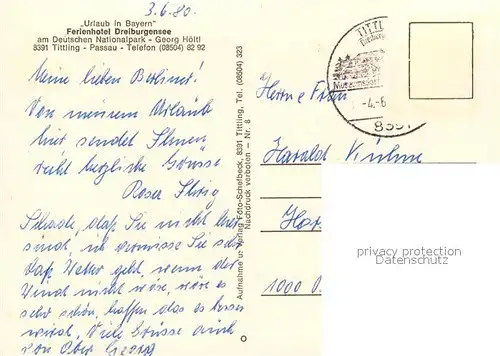 3.6.80.
„Urlaub in Bayern"
Ferienhotel Dreiburgensee
am Deutschen Nationalpark - Georg Höltl
8391 Tittling - Passau - Telefon (08504) 82 92
Meine lieben Berliner!
Von meinem Urlaub
hier sendet Ihnen
recht herzliche Grüsse
Rosa
Schade, daß Sie nicht hier
sind, ich vermisse Sie sehr
daß Wetter geht, wenn der
Wind nicht wäre, wäre es
sehr schön, hoffen das es besser
wird. Viele Grüsse auch
von Ober Georg
Aufnahme u. Verlag Foto-Schelbeck, 8391 Tittling, Tel. (08504) 323
Nachdruck verboten - Nr. 8
TITTL
Museumsdorf
-4.-6
8391
Herrn u Frau
Harald Kühne
1000
privacy protection
Datenschutz